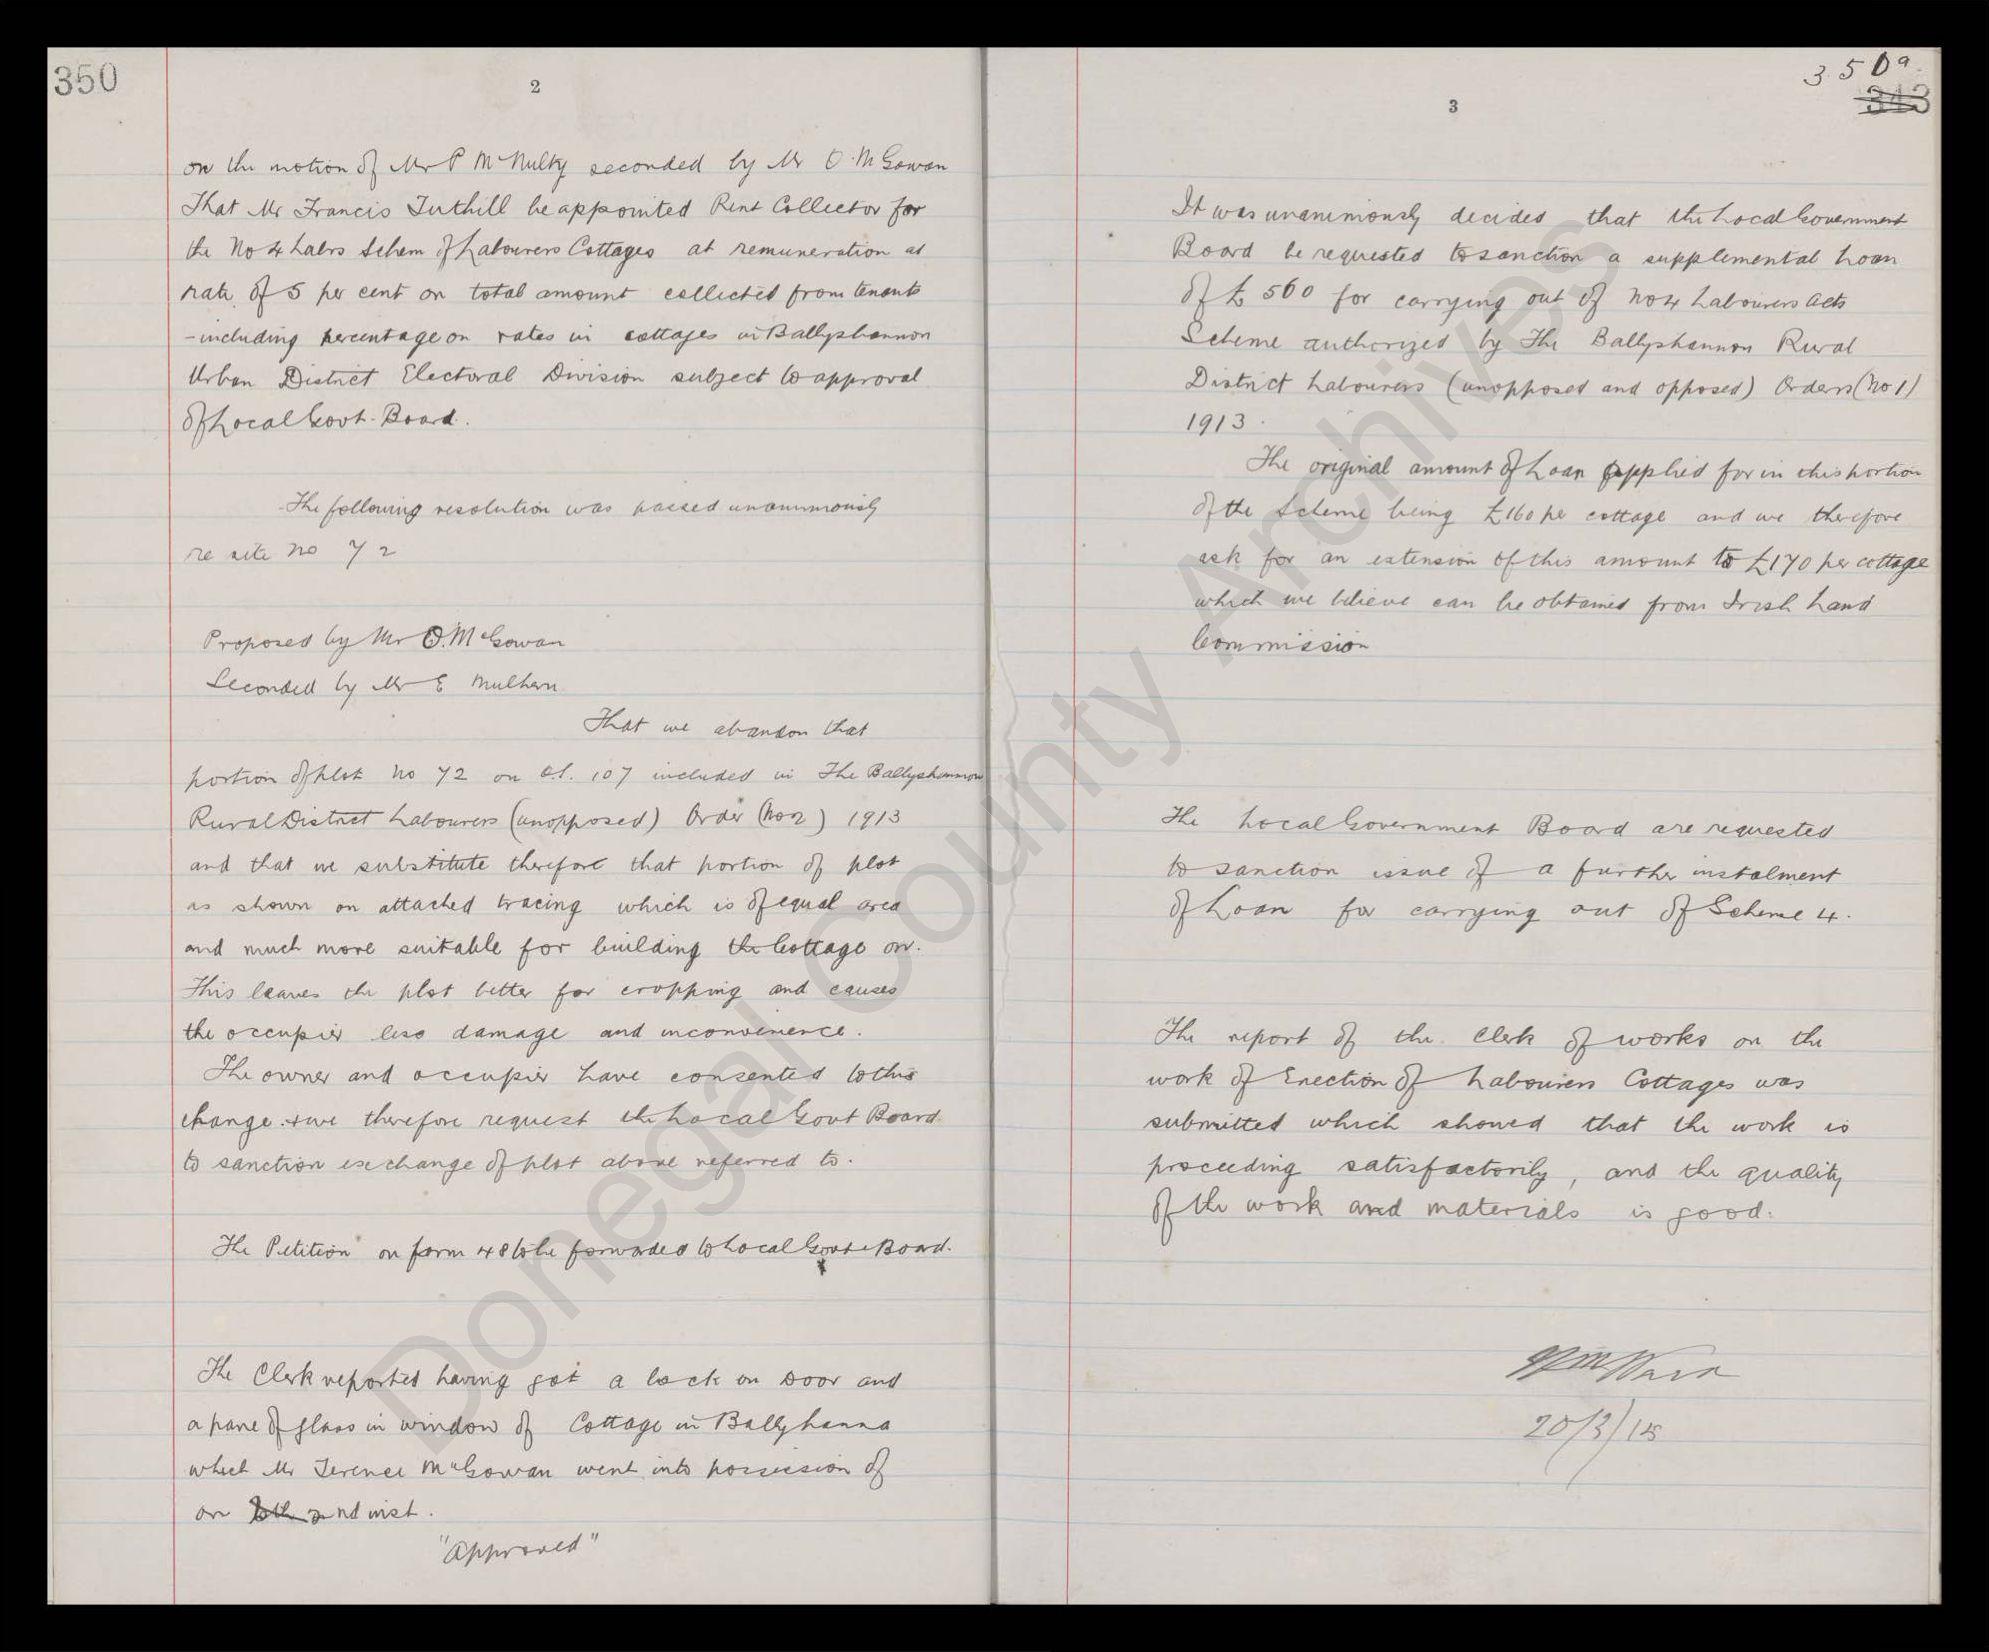 350
2
on the motion of Mr P McNulty seconded by Mr O. McGowan
That Mr Francis Tuthill be appointed Rent Collector for
the No 4 Labrs Schem of Labourers Cottages at remuneration at
rate of 5 per cent on total amount collected from tenants
-including percentage on rates in cottages in Ballyshannon
Urban District Electoral Division subject to approval
of Local Govt. Board.
The following resolution was passed unanimously
re site no 72
Proposed by Mr O. McGowan
Seconded by Mr E Mulhern
That we abandon that
portion of plot no 72 on O.S. 107 included in The Ballyshannon
Rural District Labourers (unopposed) Order (No 2) 1913
and that we substitute therefore that portion of plot
as shown on attached tracing which is of equal area
and much more suitable for building the Cottage on.
This leaves the plot better for cropping and causes
the occupier less damage and inconvenience.
The owner and occupier have consented to this
change. & we therefore request the Local Govt Board
to sanction exchange of plot above referred to.
The Petition on form 48 to be forwarded to Local Govt Board.
The Clerk reported having got a lock on Door and
a pane of glass in window of Cottage in Ballyhanna
which Mr Terence McGowan went into possession of
on 2nd inst.
"Approved"
350a
343
3
It was unanimously decided that the Local Government
Board be requested to sanction a supplemental Loan
of £560 for carrying out of No 4 Labourers Acts
Scheme authorized by The Ballyshannon Rural
District Labourers (unopposed and opposed) Orders (No 1)
1913.
The original amount of Loan applied for in this portion
of the Scheme being £160 per cottage and we therefore
ask for an extension of this amount to £170 per cottage
which we believe can be obtained from Irish Land
Commission
The Local Government Board are requested
to sanction issue of a further instalment
of Loan for carrying out of Scheme 4.
The report of the Clerk of works on the
work of Erection of Labourers Cottages was
submitted which showed that the work is
proceeding satisfactorily, and the quality
of the work and materials is good.
Ward
20/3/15
Donegal County Archives